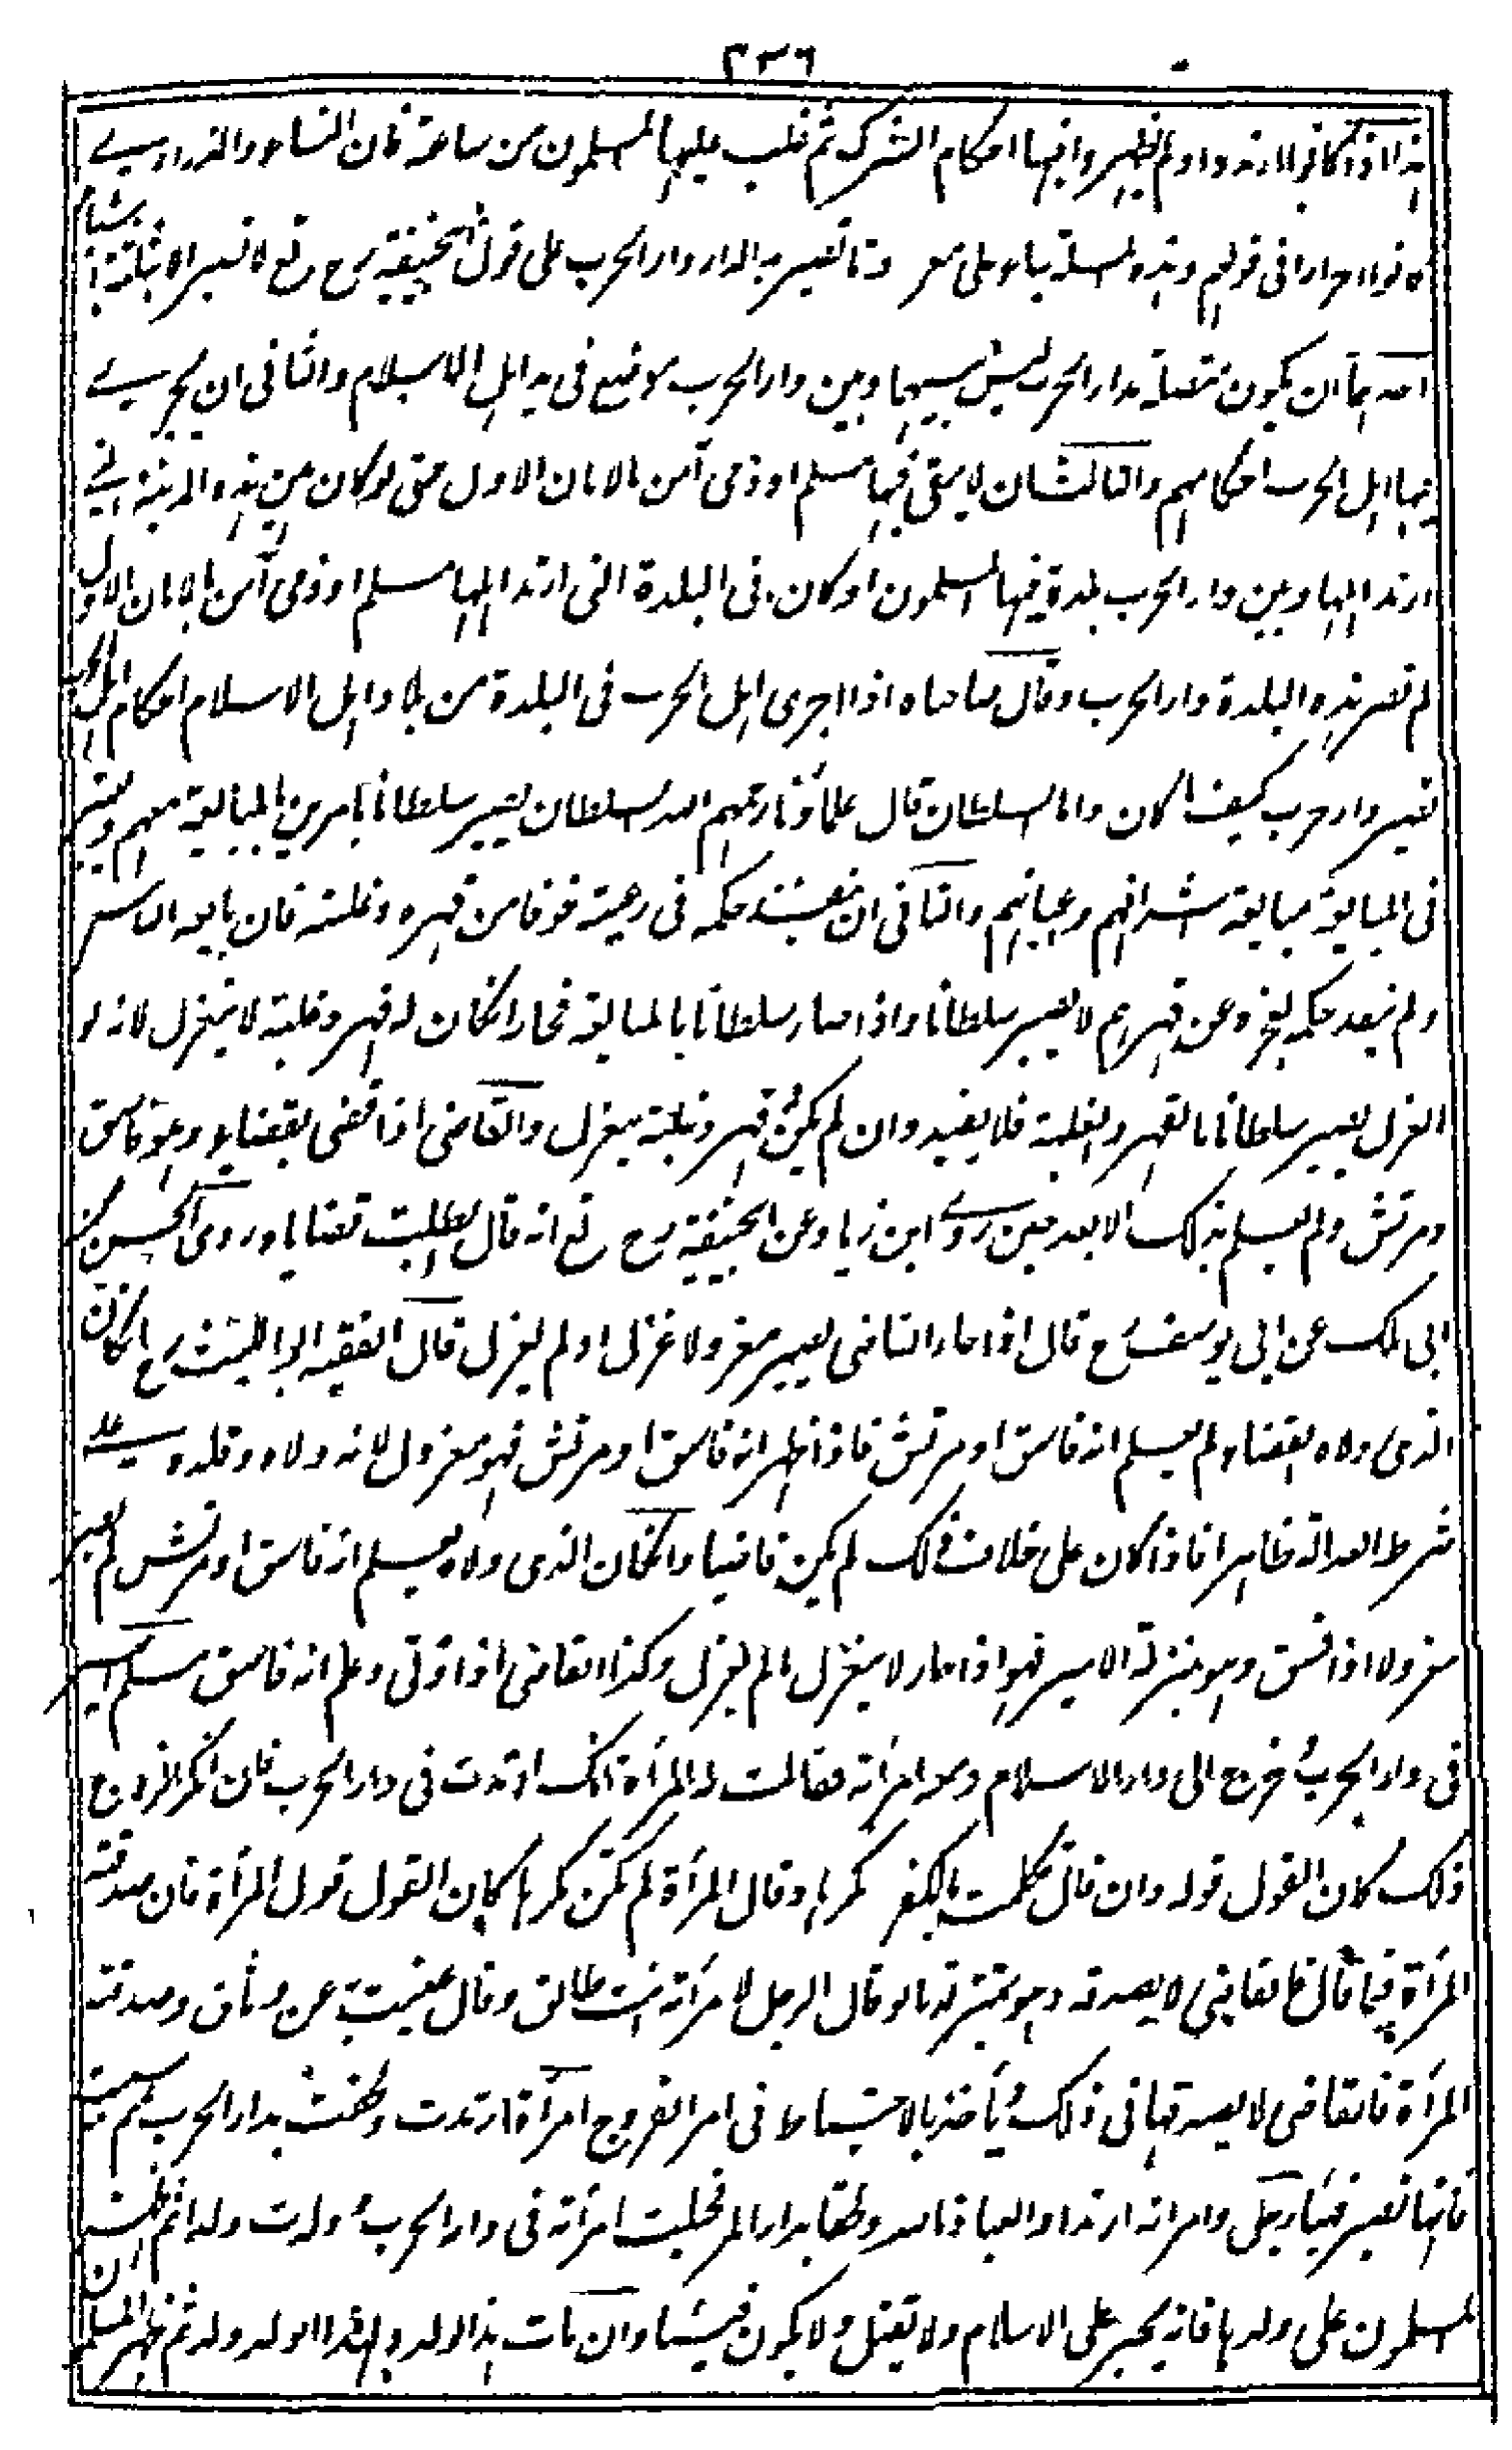 ٢٣٦
هذا اذا كانوا لارتدوا ولم يظهروا فيها احكام الشرك ثم غلب عليها المسلمون من ساعته فان النساء والذراري
كانوا احرارا فى قولهم وهذه المسئلة بناء على معرفة ما تصير به الدار دار الحرب على قول ابى حنيفة رح تع لا تصير الا بثلثة اشياء
احدها ان يكون متصلة بدار الحرب ليس بينهما وبين دار الحرب موضع فى يد اهل الاسلام والثانى ان يجرى
فيها اهل الحرب احكامهم والثالث ان لا يبقى فيها مسلم او ذمى آمن بالامان الاول حتى لو كان بين هذه المدينة التى
ارتد اهلها وبين دار الحرب بلدة فيها المسلمون او كان فى البلدة التى ارتد اهلها مسلم او ذمى آمن بالامان الاول
لم تصر هذه البلدة دار الحرب وقال صاحباه اذا اجرى اهل الحرب فى البلدة من بلاد اهل الاسلام احكام اهل الحرب
تصير دار حرب كيف ما كان واما السلطان قال علماؤنا رحمهم الله السلطان يصير سلطانا بامرين بالمبايعة معهم ويعتبر
فى المبايعة مبايعة اشرافهم واعيانهم والثانى ان ينفذ حكمه فى رعيته خوفا من قهره وغلبته فان بايعه الناس
ولم ينفذ حكمه لعجزه عن قهرهم لا يصير سلطانا واذا صار سلطانا بالمبايعة فجار ان كان له قهر وغلبة لا ينعزل لانه لو
انعزل يصير سلطانا بالقهر والغلبة فلا يفيد وان لم يكن له قهر وغلبة ينعزل والقاضى اذا قضى بقضاء وهو فاسق
ومرتش ولم يعلم بذلك الا بعد حين روى ابن زياد عن ابى حنيفة رح تع انه قال بطلت قضاياه وروى الحسن بن
ابى ملك عن ابى يوسف رح قال اذا جار القاضى يصير معزولا عزل او لم يعزل قال الفقيه ابو الليث رح ان كان
الذى ولاه القضاء لم يعلم انه فاسق او مرتش فاذا ظهر انه فاسق او مرتش فهو معزول لانه ولاه وقلده على
شرط العدالة ظاهرا فاذا كان على خلاف ذلك لم يكن قاضيا وان كان الذى ولاه يعلم انه فاسق او مرتش لم يصر
معزولا اذا فسق وهو بمنزلة الامير فهو اذا جار لا ينعزل ما لم يعزل وكذا القاضى اذا ولى وعلم انه فاسق مسلم اسر
فى دار الحرب فخرج الى دار الاسلام ومعه امرأته فقالت له المرأة انك ارتددت فى دار الحرب فان انكر الزوج
ذلك كان القول قوله وان قال تكلمت بالكفر مكرها وقال المرأة لم تكن مكرها كان القول قول المرأة فان صدقته
المرأة فيما قال فالقاضى لا يصدقه وهو بمنزلة ما لو قال الرجل لامرأته انت طالق وقال عنيت عن وثاق وصدقته
المرأة فالقاضى لا يصدقها فى ذلك يأخذ بالاحتياط فى امر الفروج امرأة ارتدت ولحقت بدار الحرب ثم سبيت
فانها تصير فيئا رجل وامرأته ارتدا والعياذ بالله ولحقا بدار الحرب فحبلت امرأته فى دار الحرب ولدت ولدا ثم ظهر
المسلمون على ولدها فانه يجبر على الاسلام ولا يقتل ولا يكون فيئا وان مات هذا الولد ولهذا الولد ولد ثم ظهر المسلمون